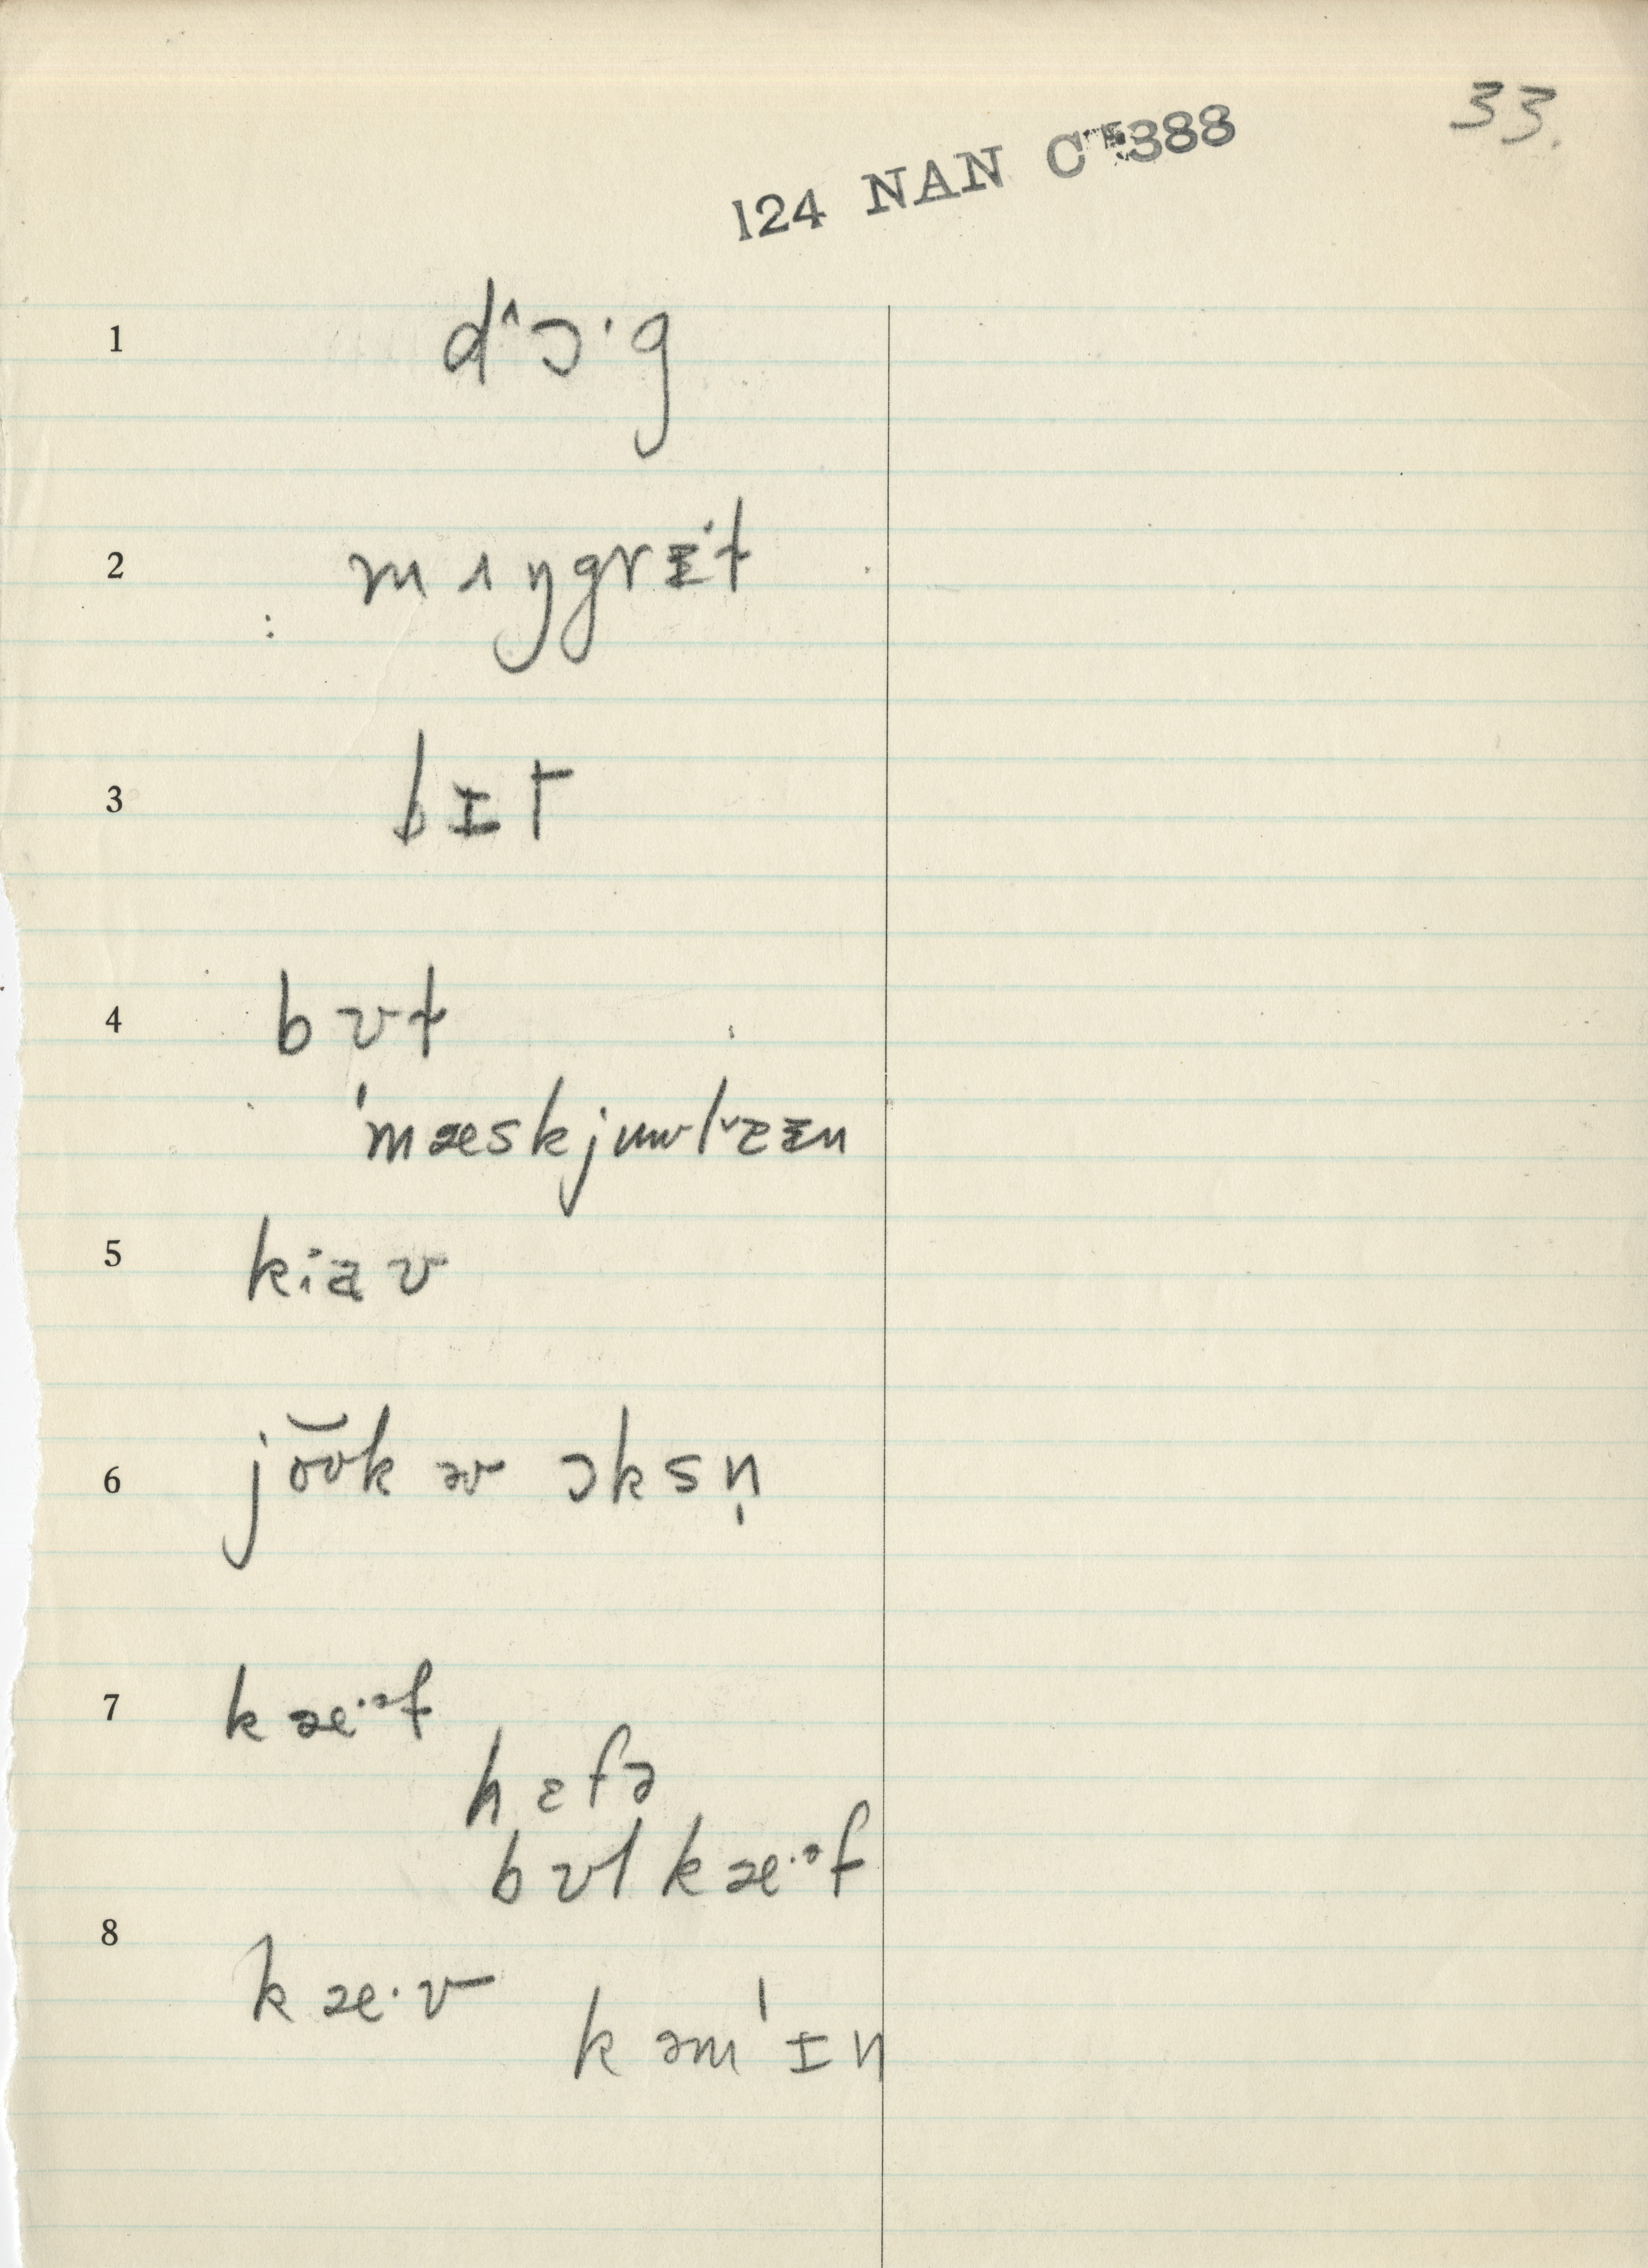 33.
124 NAN C 388
1 d^ɔ·g
2 mɪŋgrɪt
3 bɪt
4 bʊt
ˈmæskjuwlʌɪn
5 kiaʊ
6 jo͝ʊk əv ɔksn̩
7 kæ·ᵊf
hɛfə
bʊl kæ·ᵊf
8 kæ·v kəmˈɪn